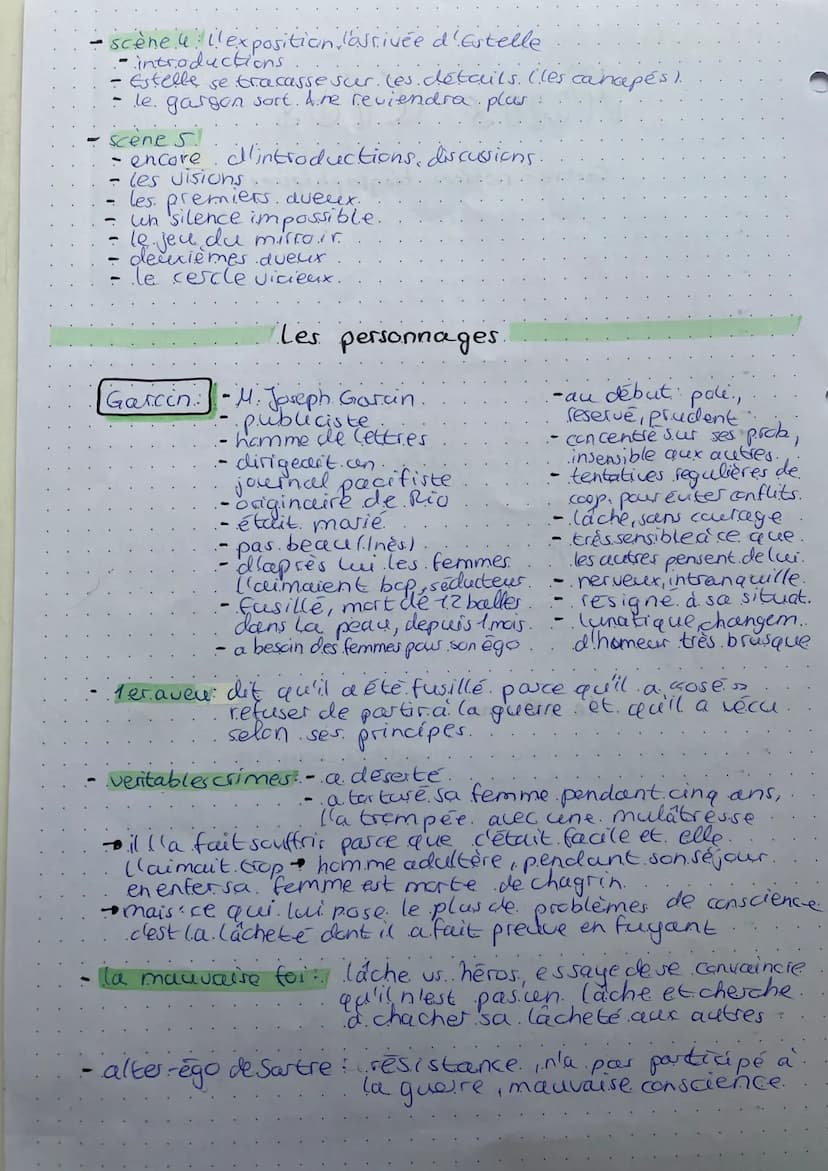 - scène 4: L'exposition, l'arrivée d'Estelle
- introductions
- Estelle se tracasse sur les détails (les canapés)
- le garçon sort & ne reviendra plus
- scène 5:
- encore d'introductions, discussions
- les visions
- les premiers aveux
- un silence impossible
- le jeu du mirroir
- deuxièmes aveux
- le cercle vicieux
Les personnages
Garcin:
- M. Joseph Garcin
- publiciste
- homme de lettres
- dirigeait un
journal pacifiste
- originaire de Rio
- était marié
- pas beau (Inès)
- d'après lui les femmes
l'aimaient bcp, séducteur
- fusillé, mort de 12 balles
dans la peau, depuis 1 mois
- a besoin des femmes pour son égo
- au début: poli,
reservé, prudent
- concentré sur ses prob,
insensible aux autres
- tentatives regulières de
coop. pour éviter conflits
- lâche, sans courage
- très sensible à ce que
les autres pensent de lui
- nerveux, intranquille
- resigné à sa situat.
- lunatique, changem.
d'homeur très brusque
- 1er aveu: dit qu'il a été fusillé parce qu'il a «osé»
refuser de partir à la guerre et qu'il a vécu
selon ses principes.
- veritables crimes: - a déserté
- a torturé sa femme pendant cinq ans,
l'a trompée avec une mulâtresse
→ il l'a fait souffrir parce que c'était facile et elle
l'aimait trop → homme adultère, pendant son séjour
en enfer sa femme est morte de chagrin.
→ mais: ce qui lui pose le plus de problèmes de conscience
c'est la lâcheté dont il a fait preuve en fuyant
- la mauvaise foi: lâche vs. héros, essaye de se convaincre
qu'il n'est pas un lâche et cherche
à chacher sa lâcheté aux autres
- alter-égo de Sartre: résistance, n'a pas participé à
la guerre, mauvaise conscience.